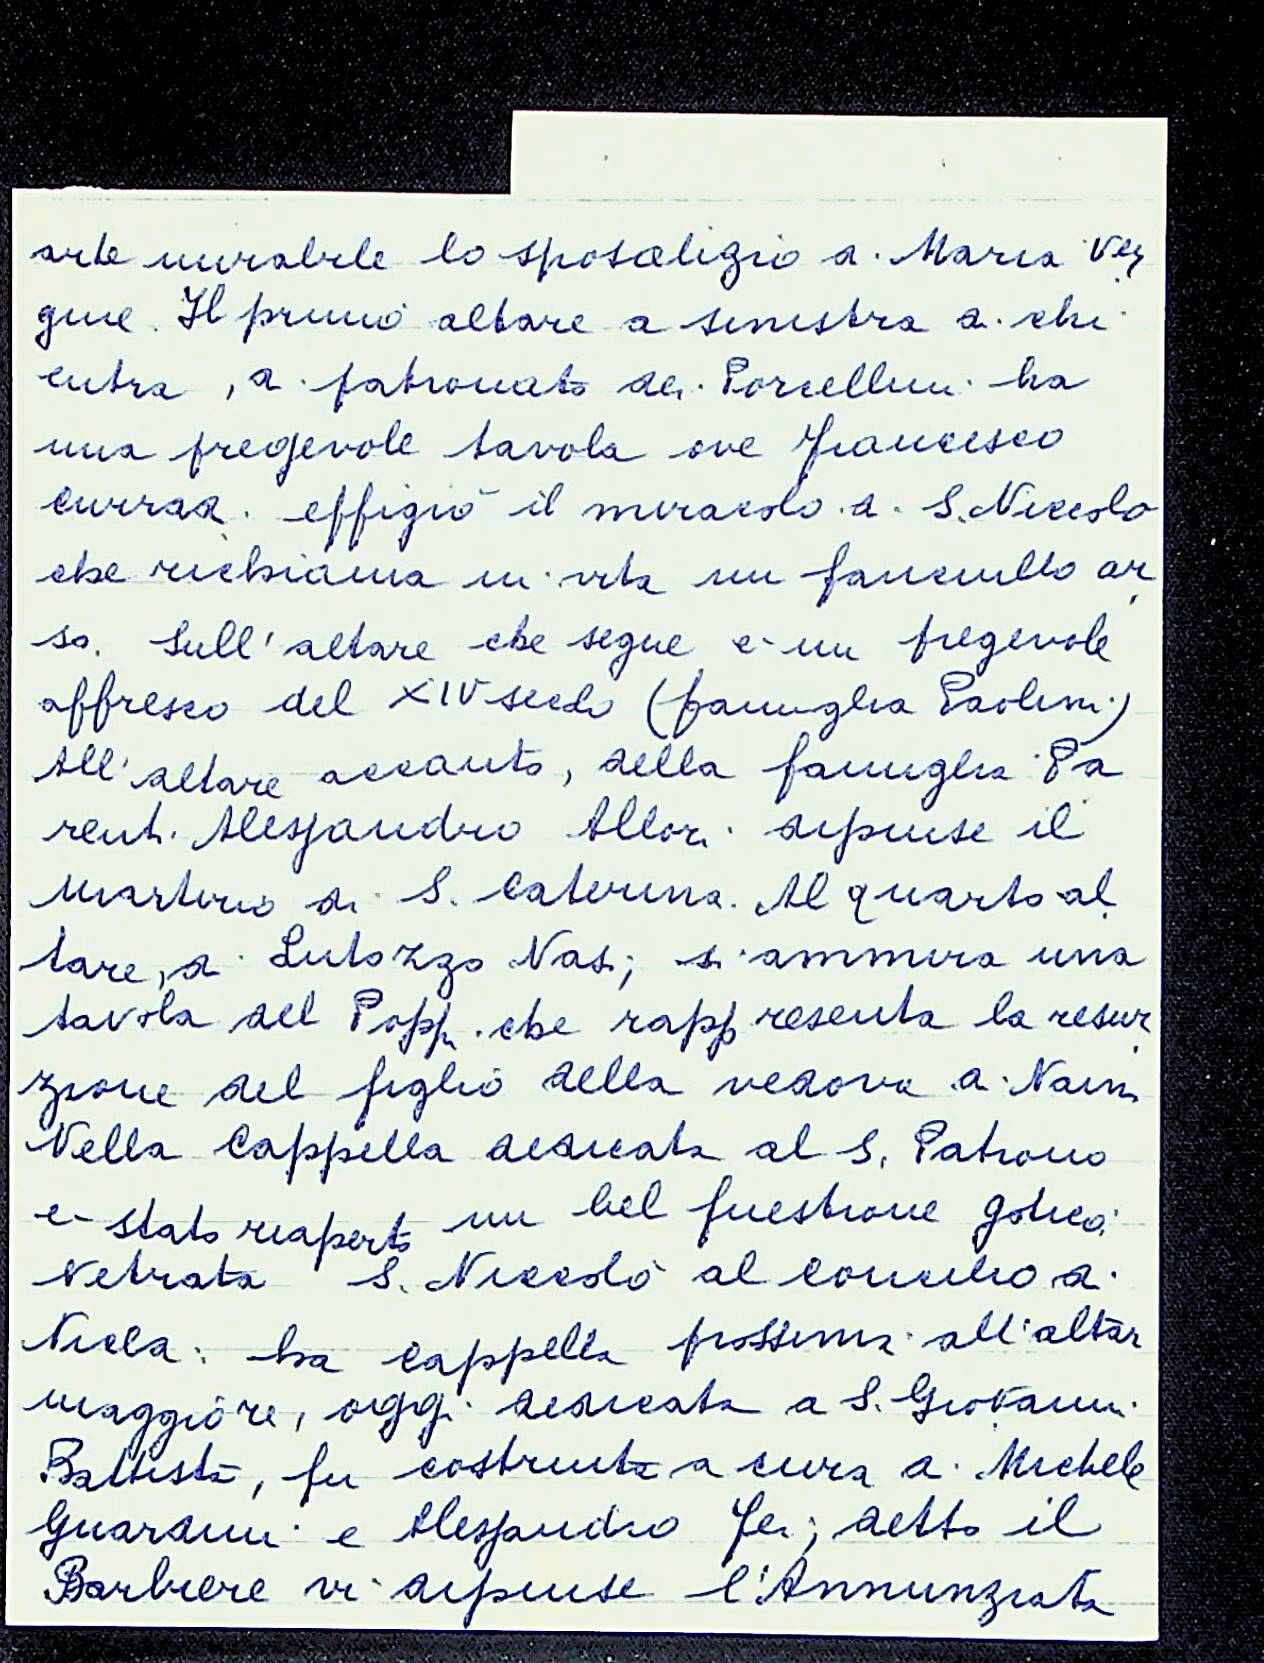 arte mirabile lo sposalizio di Maria Ver
gine. Il primo altare a sinistra di chi
entra, di patronato dei Porcellini ha
una pregevole tavola ove Francesco
Curradi effigiò il miracolo di S. Niccolò
che richiama in vita un fanciullo ar
so. Sull'altare che segue è un pregevole
affresco del XIV secolo (famiglia Paolini)
All'altare accanto, della famiglia Pa
renti Alessandro Allori dipinse il
martirio di S. Caterina. Al quarto al
tare, di Lutozzo Nasi, si ammira una
tavola del Poppi che rappresenta la resur
zione del figlio della vedova di Naim
Nella Cappella dedicata al S. Patrono
è stato riaperto un bel finestrone gotico:
vetrata S. Niccolò al Concilio di
Nicea. La cappella prossima all'altar
maggiore, oggi dedicata a S. Giovanni
Battista, fu costruita a cura di Michele
Guardini e Alessandro Fei, detto il
Barbiere vi dipinse l'Annunziata